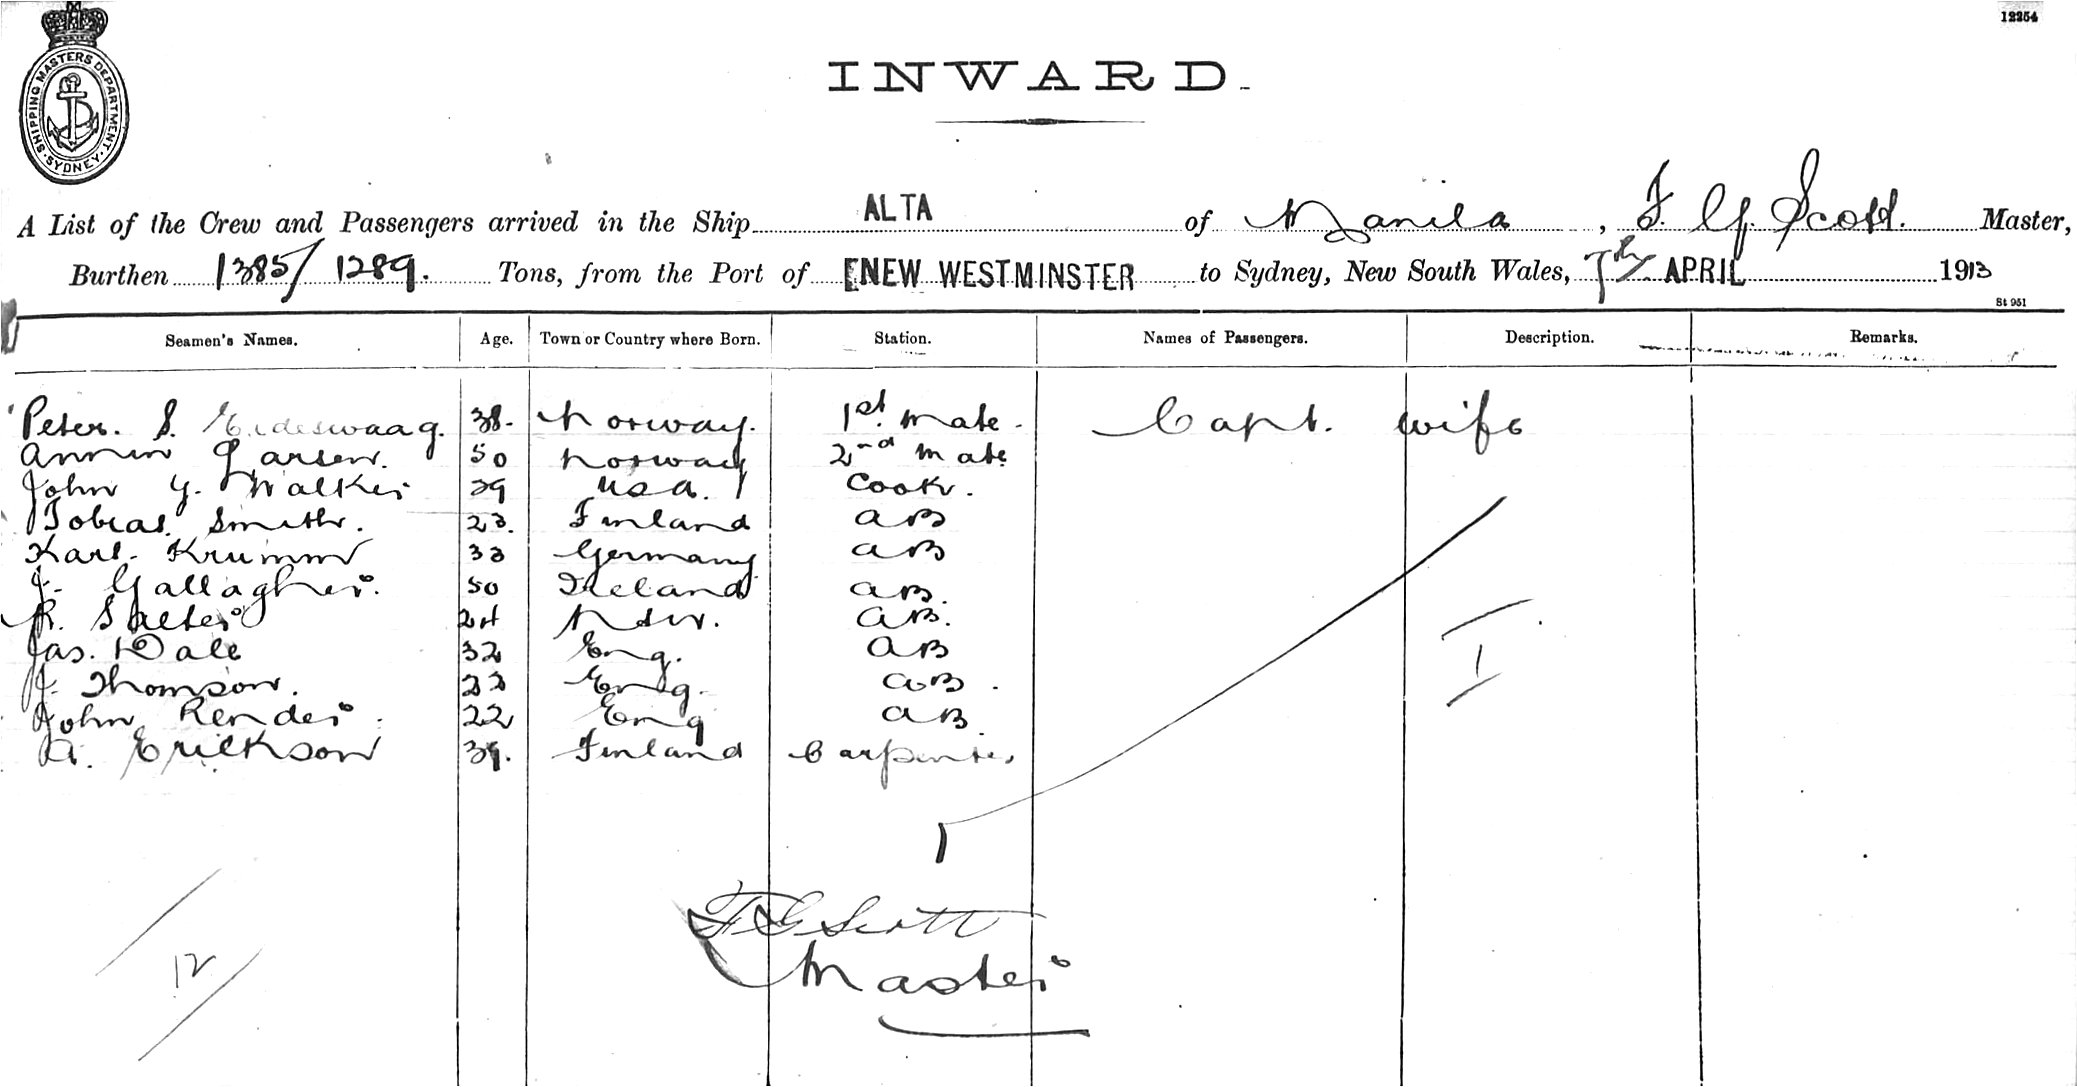 12254
SHIPPING MASTERS DEPARTMENT
SYDNEY
INWARD.
A List of the Crew and Passengers arrived in the Ship ALTA of Manila, F. G. Scott. Master,
Burthen 1385/1289. Tons, from the Port of NEW WESTMINSTER to Sydney, New South Wales, 7th APRIL 1913
St 951
Seamen's Names. Age. Town or Country where Born. Station. Names of Passengers. Description. Remarks.
Peter. S. Eideswaag. 38. Norway. 1st. Mate. Capt. wife
Larsen. 50 Norway 2nd Mate
John Y. Walker 39 USA. Cook.
Tobias Smith. 23. Finland AB
Karl. Krumm 33 Germany AB
J. Gallagher. 50 Ireland AB.
R. Salter 24 NSW. AB.
Jas. Dale 32 Eng. AB
J. Thomson. 23 Eng. AB.
John Render 22 Eng AB
A. Erickson 39. Finland Carpenter
1
1
F G Scott
Master
12